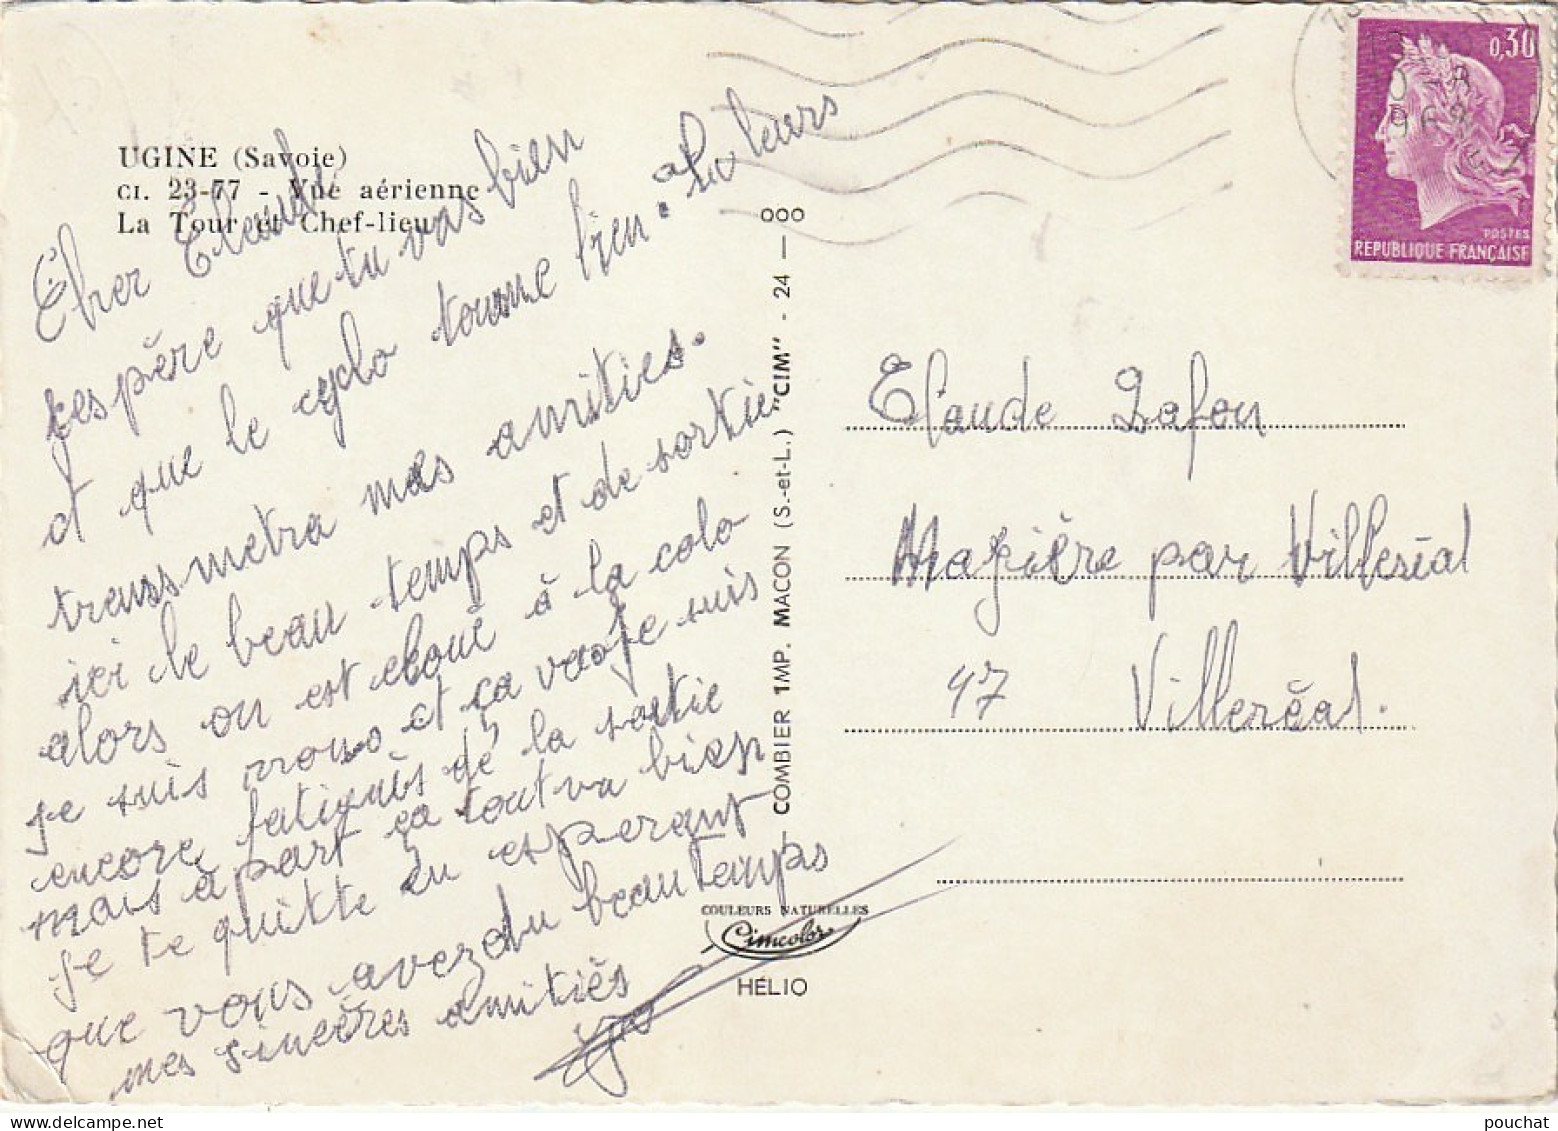 UGINE (Savoie)
CI. 23-77 - Vue aérienne
La Tour et Chef-lieu
Cher Claude
j'espère que tu vas bien
et que le cyclo tourne bien. Tu leurs
transsmetra mes amities.
ici le beau temps et de sortie
alors on est cloué à la colo
je suis mono et ça va je suis
encore fatigués de la sortie
mais à part ça tout va bien
je te quitte en esperant
que vous avez du beau temps
mes sincères amitiés
000
COMBIER IMP. MACON (S.-et-L.) "CIM" - 24 -
COULEURS NATURELLES
Cimcolor
HÉLIO
0,30
POSTES
REPUBLIQUE FRANÇAISE
Claude Lafon
Mazière par Villeréal
47 Villeréal.
pouchat